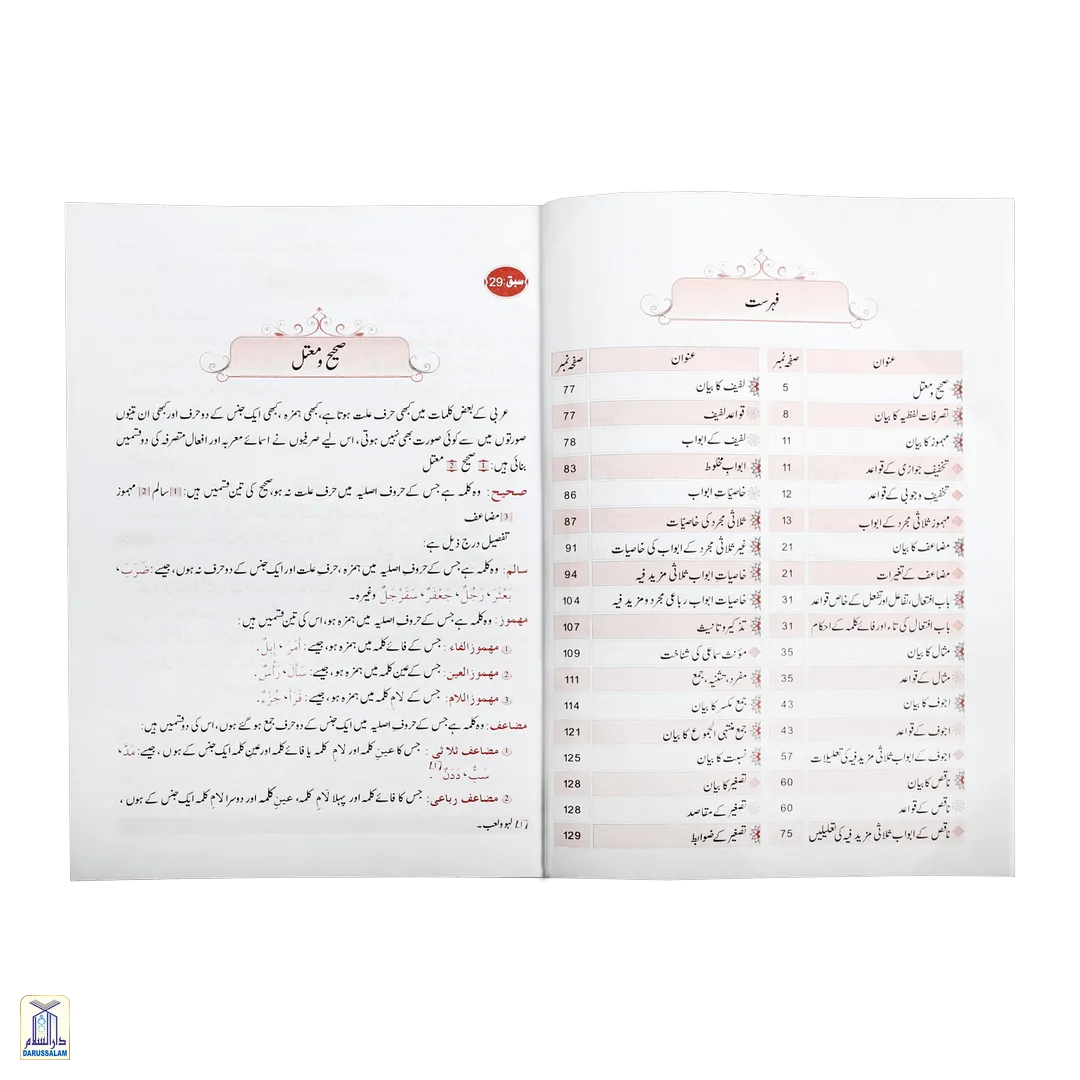 فہرست
عنوان صفحہ نمبر عنوان صفحہ نمبر
صحیح و معتل 5 لفیف کا بیان 77
تصرفات لفظیہ کا بیان 8 قواعد لفیف 77
مہموز کا بیان 11 لفیف کے ابواب 78
تخفیف جوازی کے قواعد 11 ابواب مخلوط 83
تخفیف وجوبی کے قواعد 12 خاصیّات ابواب 86
مہموز ثلاثی مجرد کے ابواب 13 ثلاثی مجرد کی خاصیّات 87
مضاعف کا بیان 21 غیر ثلاثی مجرد کے ابواب کی خاصیات 91
مضاعف کے تغیرات 21 خاصیات ابواب ثلاثی مزید فیہ 94
باب افتعال، تفاعل اور تفعل کے خاص قواعد 31 خاصیات ابواب رباعی مجرد و مزید فیہ 104
باب افتعال کی تاء اور فائے کلمہ کے احکام 31 تذکیر و تانیث 107
مثال کا بیان 35 مؤنث سماعی کی شناخت 109
مثال کے قواعد 35 مفرد، تثنیہ، جمع 111
اجوف کا بیان 43 جمع مکسر کا بیان 114
اجوف کے قواعد 43 جمع منتہی الجموع کا بیان 121
اجوف کے ابواب ثلاثی مزید فیہ کی تعلیلات 57 نسبت کا بیان 125
ناقص کا بیان 60 تصغیر کا بیان 128
ناقص کے قواعد 60 تصغیر کے مقاصد 128
ناقص کے ابواب ثلاثی مزید فیہ کی تعلیلیں 75 تصغیر کے ضوابط 129
سبق:29
صحیح و معتل
عربی کے بعض کلمات میں کبھی حرف علت ہوتا ہے، کبھی ہمزہ، کبھی ایک جنس کے دو حرف اور کبھی ان تینوں
صورتوں میں سے کوئی صورت بھی نہیں ہوتی، اس لیے صرفیوں نے اسمائے معربہ اور افعال متصرفہ کی دو قسمیں
بنائی ہیں: 1 صحیح 2 معتل
صحیح: وہ کلمہ ہے جس کے حروف اصلیہ میں حرف علت نہ ہو، صحیح کی تین قسمیں ہیں: 1 سالم 2 مہموز
3 مضاعف
تفصیل درج ذیل ہے:
سالم: وہ کلمہ ہے جس کے حروفِ اصلیہ میں ہمزہ، حرفِ علت اور ایک جنس کے دو حرف نہ ہوں، جیسے: ضَرَبَ،
بَعْثَرَ، رَجُلٌ، جَعْفَرٌ، سَفَرْجَلٌ وغیرہ۔
مہموز: وہ کلمہ ہے جس کے حروف اصلیہ میں ہمزہ ہو، اس کی تین قسمیں ہیں:
① مهموز الفاء: جس کے فائے کلمہ میں ہمزہ ہو، جیسے: أَمَرَ، إِبِلٌ.
② مهموز العين: جس کے عین کلمہ میں ہمزہ ہو، جیسے: سَأَلَ، رَأْسٌ.
③ مهموز اللام: جس کے لامِ کلمہ میں ہمزہ ہو، جیسے: قَرَأَ، جُزْءٌ.
مضاعف: وہ کلمہ ہے جس کے حروفِ اصلیہ میں ایک جنس کے دو حرف جمع ہو گئے ہوں، اس کی دو قسمیں ہیں:
① مضاعف ثلاثی: جس کا عینِ کلمہ اور لامِ کلمہ یا فائے کلمہ اور عینِ کلمہ ایک جنس کے ہوں، جیسے: مَدَّ،
سَبٌّ، دَدَنٌ [1].
② مضاعف رباعی: جس کا فائے کلمہ اور پہلا لامِ کلمہ، عینِ کلمہ اور دوسرا لامِ کلمہ ایک جنس کے ہوں،
[1] لہو و لعب۔
دار السلام
DARUSSALAM